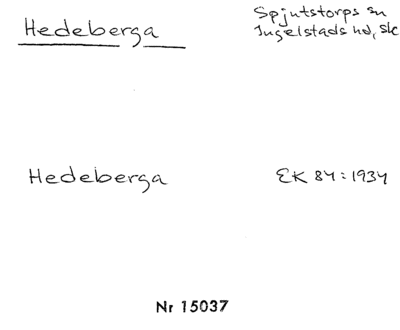 Hedeberga
Spjutstorps sn
Ingelstads hd, Sk
Hedeberga
EK 84:1934
Nr 15037